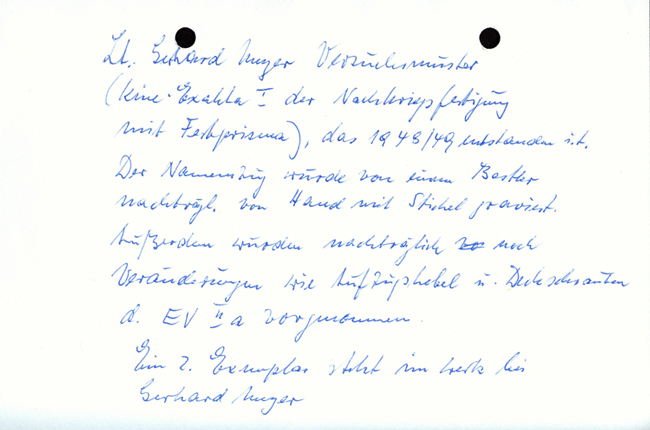 Lt. Gerhard Unger Versuchsmuster
(Kine-Exakta I der Nachkriegsfertigung
mit Festprisma), das 1948/49 entstanden ist.
Der Namenszug wurde von einem Bastler
nachträgl. von Hand mit Stichel graviert.
Außerdem wurden nachträglich noch
Veränderungen wie Aufzugshebel u. Deckschrauben
d. EV II a vorgenommen.
Ein 2. Exemplar steht im Werk bei
Gerhard Unger